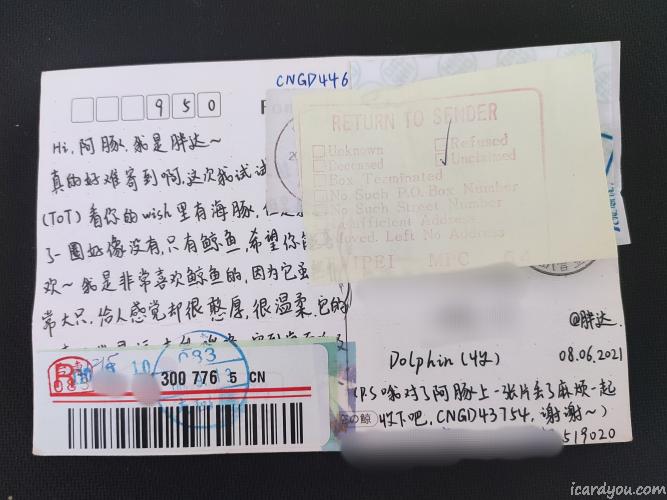 CNGD446
950
Hi, 阿豚, 我是胖达~
真的好难寄到啊, 这次我试试
(ToT) 看你的wish里有海豚,
了一圈好像没有, 只有鲸鱼, 希望你能
欢~ 我是非常喜欢鲸鱼的, 因为它虽
常大只, 给人感觉却很憨厚, 很温柔, 它的
RETURN TO SENDER
Unknown
Refused
Deceased
Unclaimed
Box Terminated
No Such P.O. Box Number
No Such Street Number
Insufficient Address
Moved, Left No Address
TPEI MPC 54
@胖达.
Dolphin (4好)
08.06.2021
(P.S 哦对了阿豚上一张片丢了麻烦一起
收下吧, CNGD43754, 谢谢~)
の鲸
519020
R
083
300 776 5 CN
icardyou.com